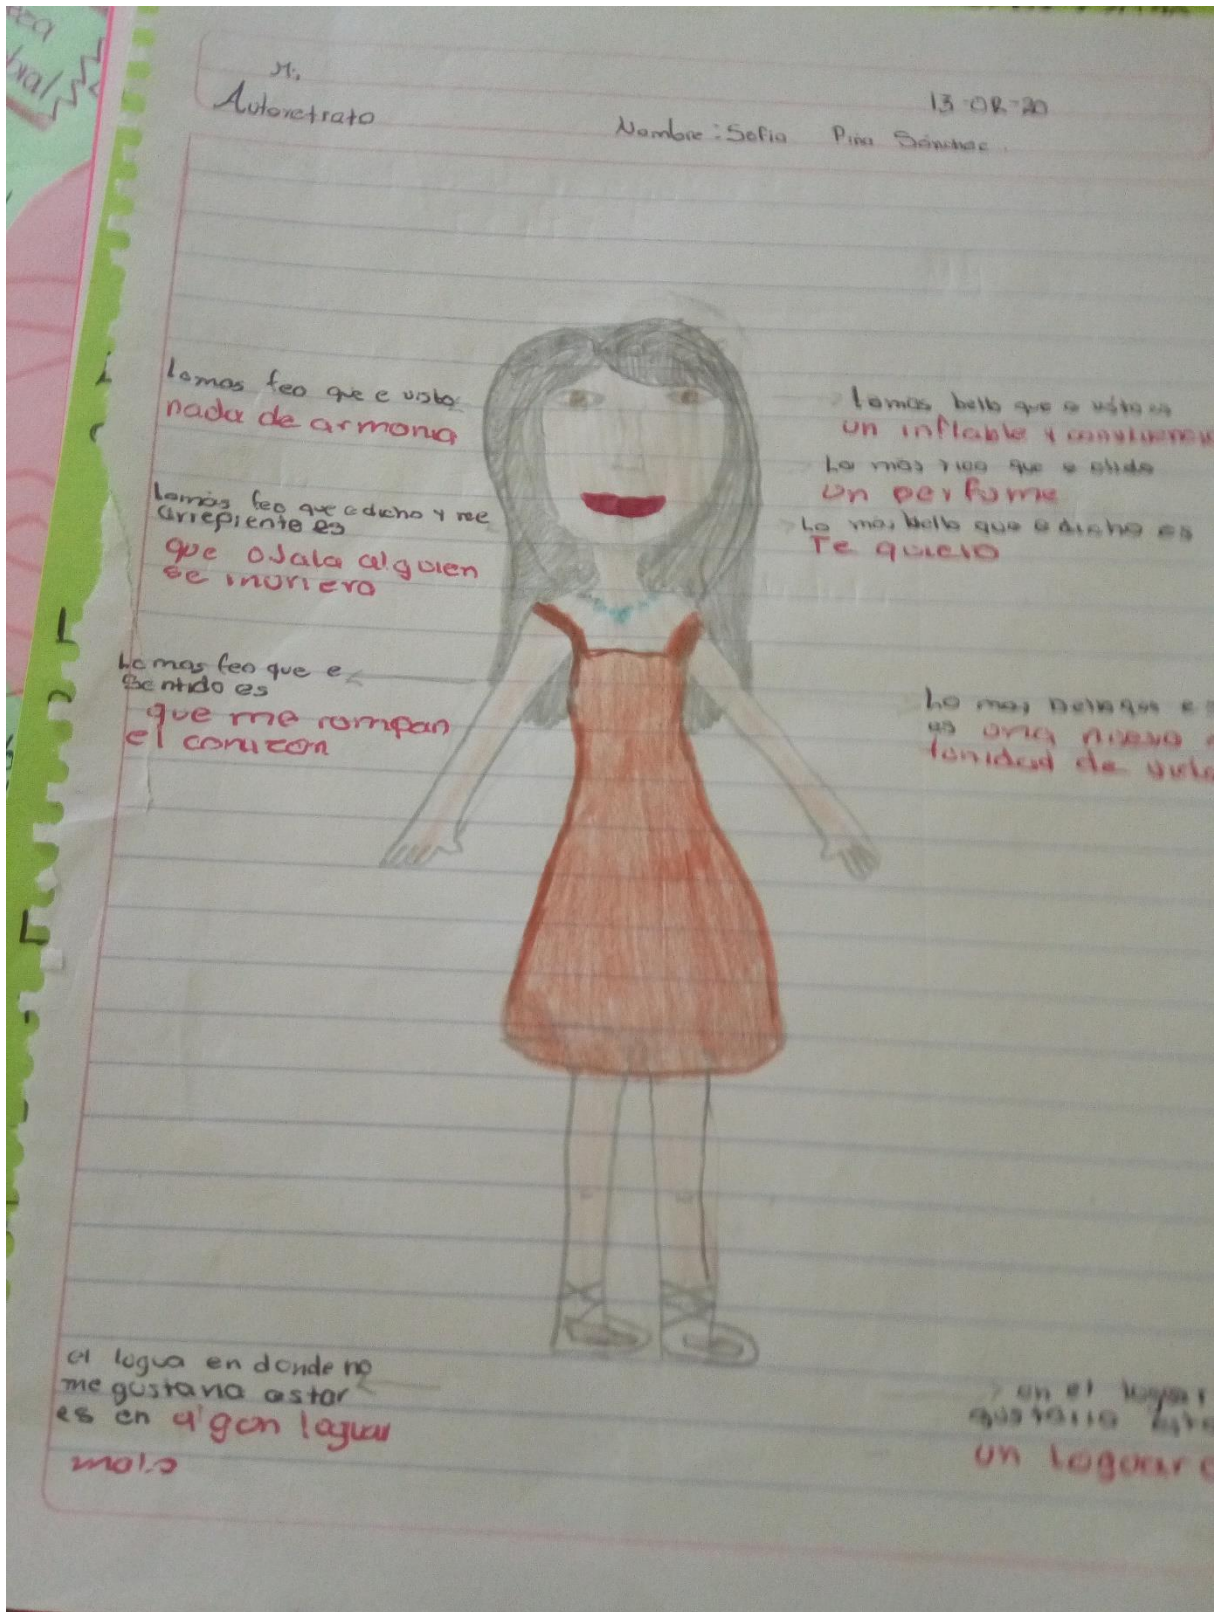 Mi
Autoretrato
13-08-20
Nombre: Sofia Piña Sánchez.
Lo mas feo que e visto
nada de armonia
Lo mas feo que e dicho y me
arrepiente es
que ojala alguien
se muriera
Lo mas feo que e
Sentido es
que me rompan
el corazon
el logua en donde no
me gustaria estar
es en algon laguar
malo
Lo mas bello que e visto es
un inflable y
Lo mas rico que e olido
un perfume
Lo mas bello que e dicho es
Te quiero
Lo mas bello que e
es una nueva
tonidad de vida
en el logar
gustaria
un logoar